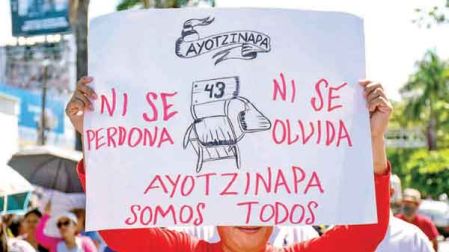 AYOTZINAPA
43
NI SE PERDONA
NI SE OLVIDA
AYOTZINAPA
SOMOS TODOS